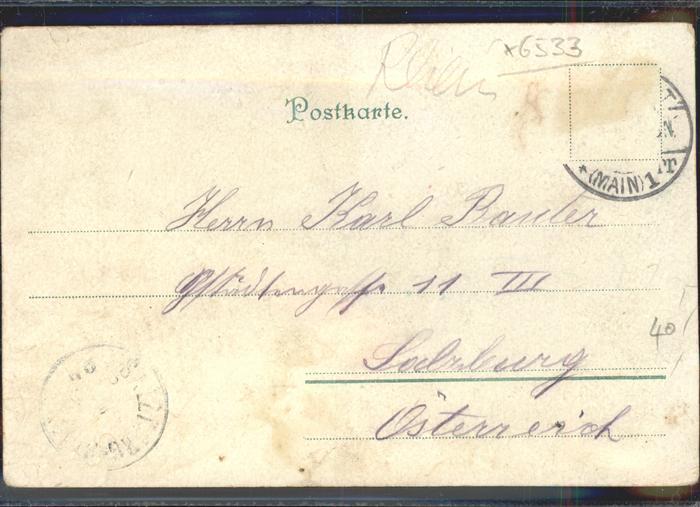 x6533
Rhein
Postkarte.
(MAIN) 1
Herrn Karl Bauler
Gstättengasse 11 III
Salzburg
40
Österreich